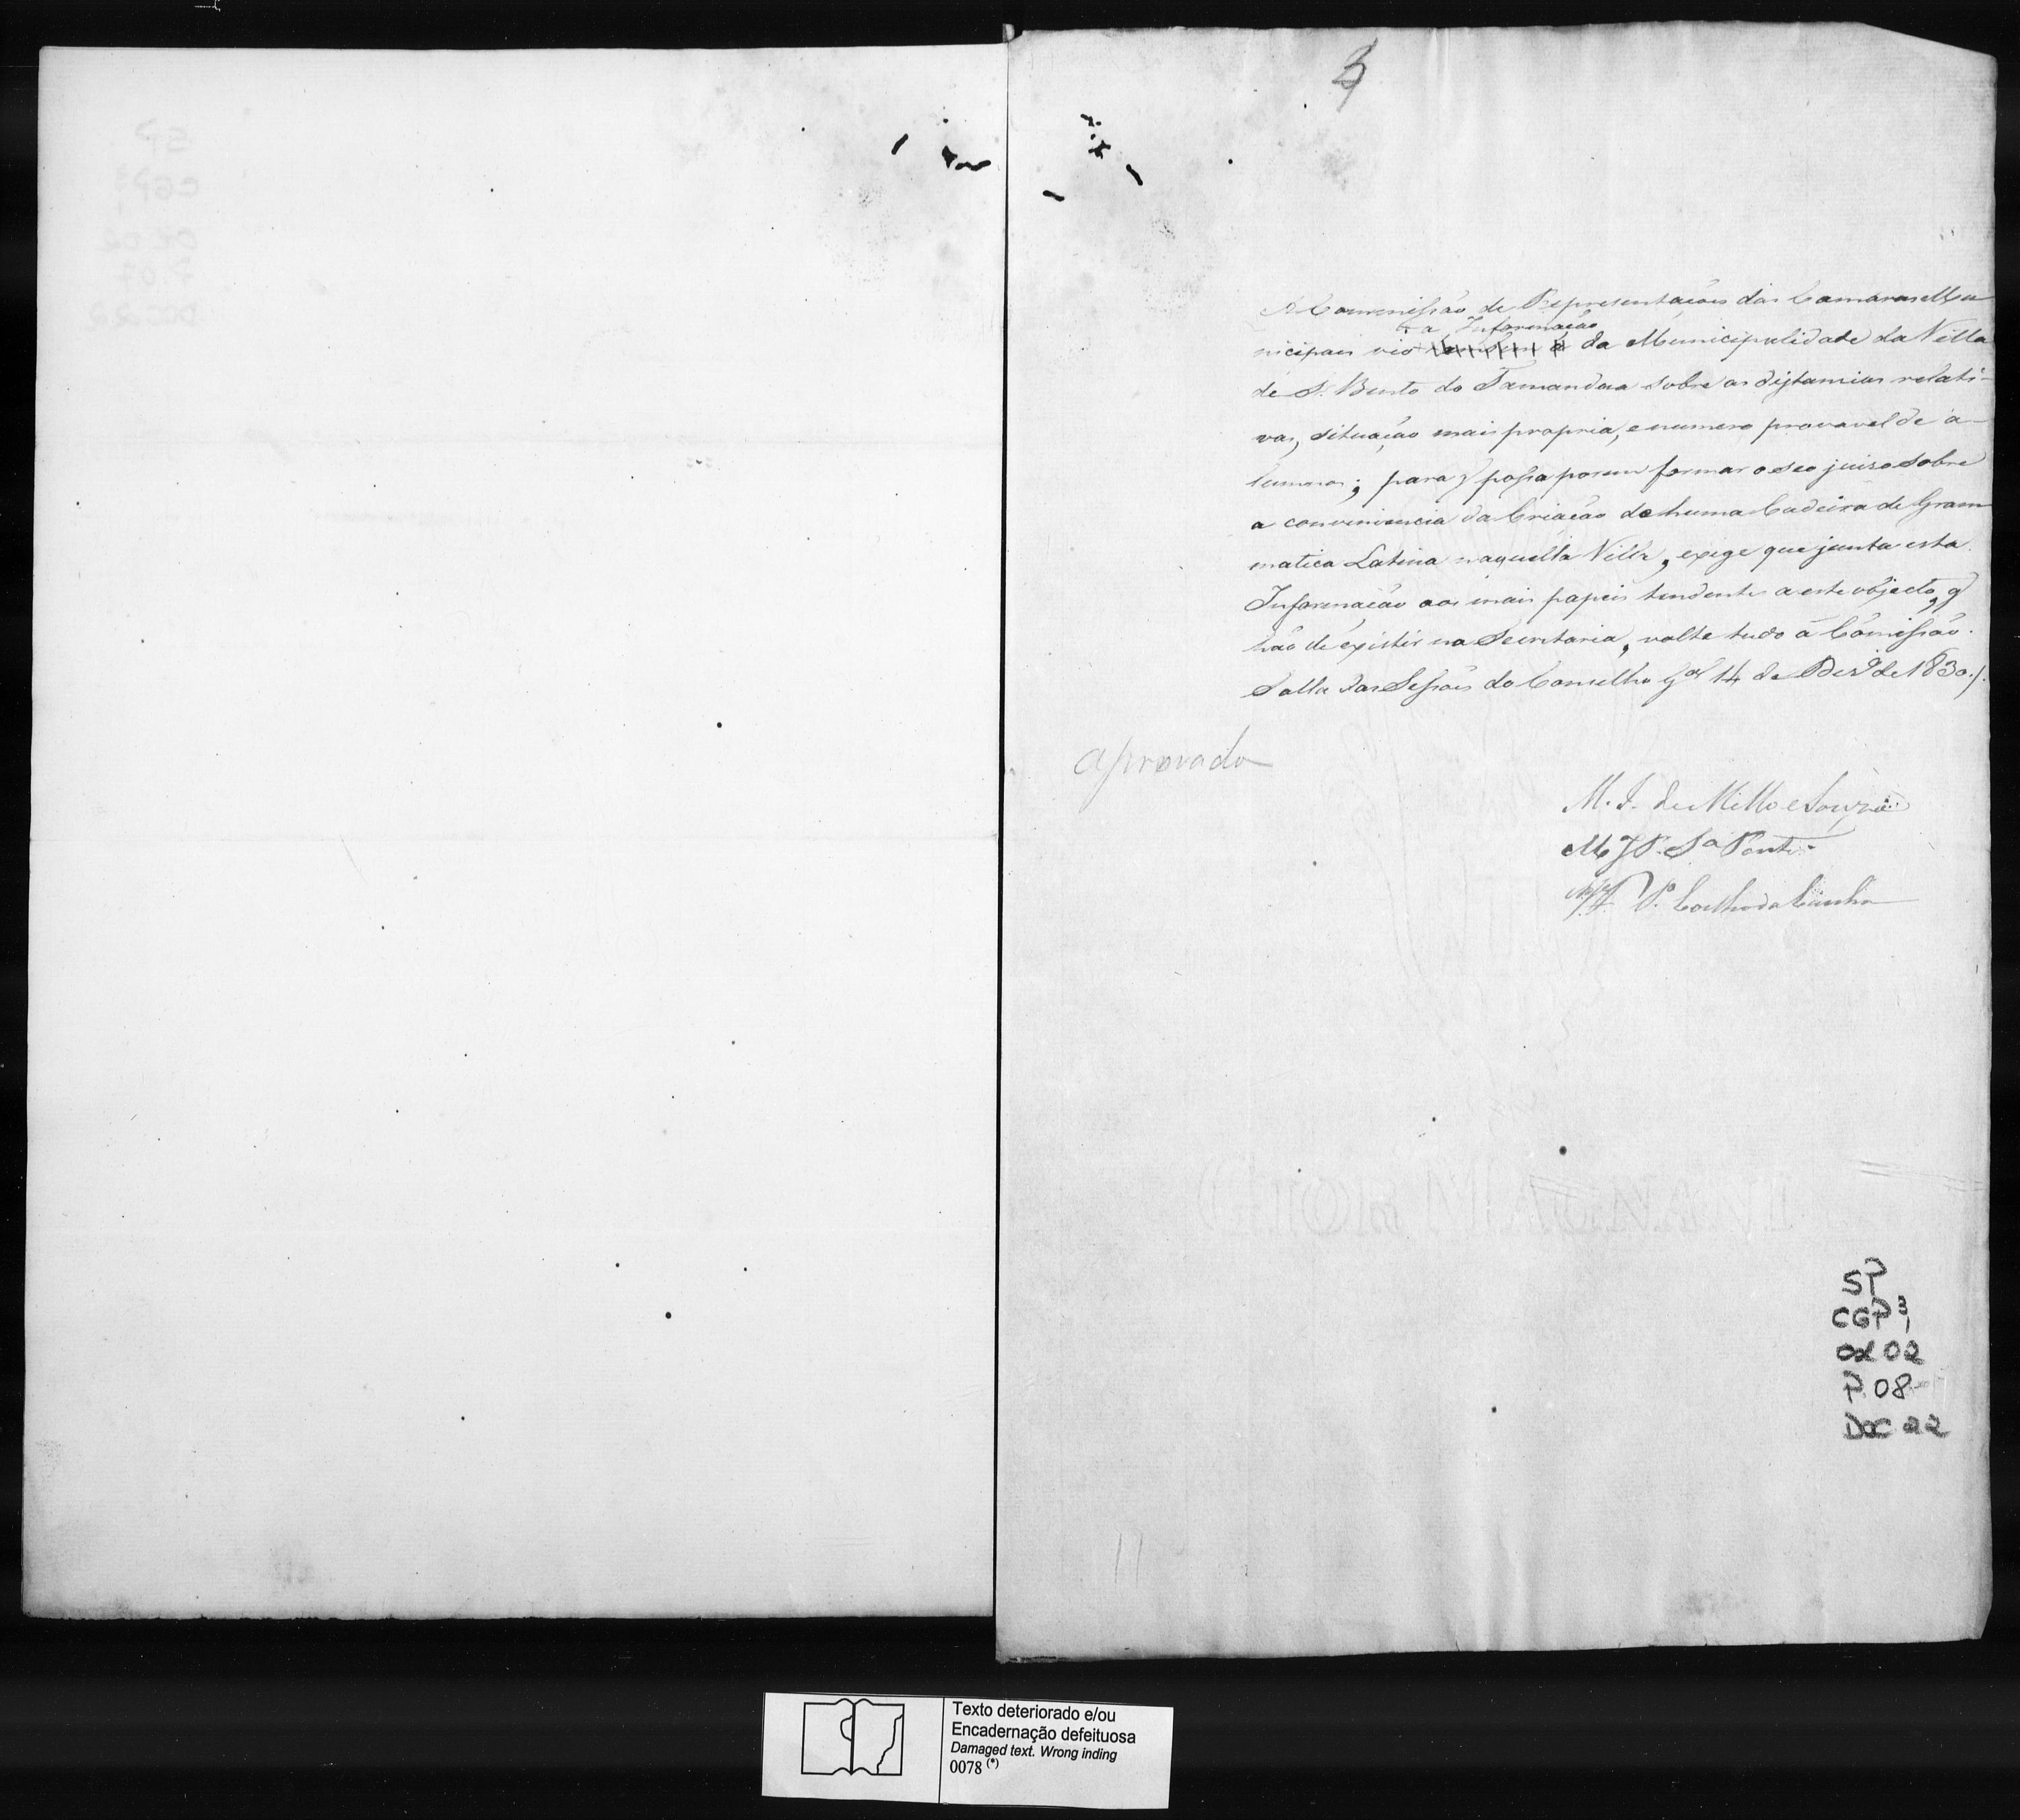 A Commissão de Representações das Camaras Mu
nicipais vio a Informação da Municipalidade da Villa
de S. Bento do Tamandua sobre as distancias relati-
vas, situação mais propria, e numero provavel de a-
lumnos; para q possa porem formar o seo juiso sobre
a conveniencia da Criação de huma Cadeira de Gram
matica Latina naquella Villa, exige que junta esta
Informação aos mais papeis tendentes a este objecto, q
hão de existir na Secretaria, volte tudo á Cõmissão.
Salla das Sessões do Conselho G.al 14 de Dez.o de 1830./.
aprovado
M. I. de Mello e Souza
M J P. S.a Pontes
P. Coelho da Cunha
SP
CGP 3
1
CX 02
P. 08
DOC 22
Texto deteriorado e/ou
Encadernação defeituosa
Damaged text. Wrong inding
0078 (*)